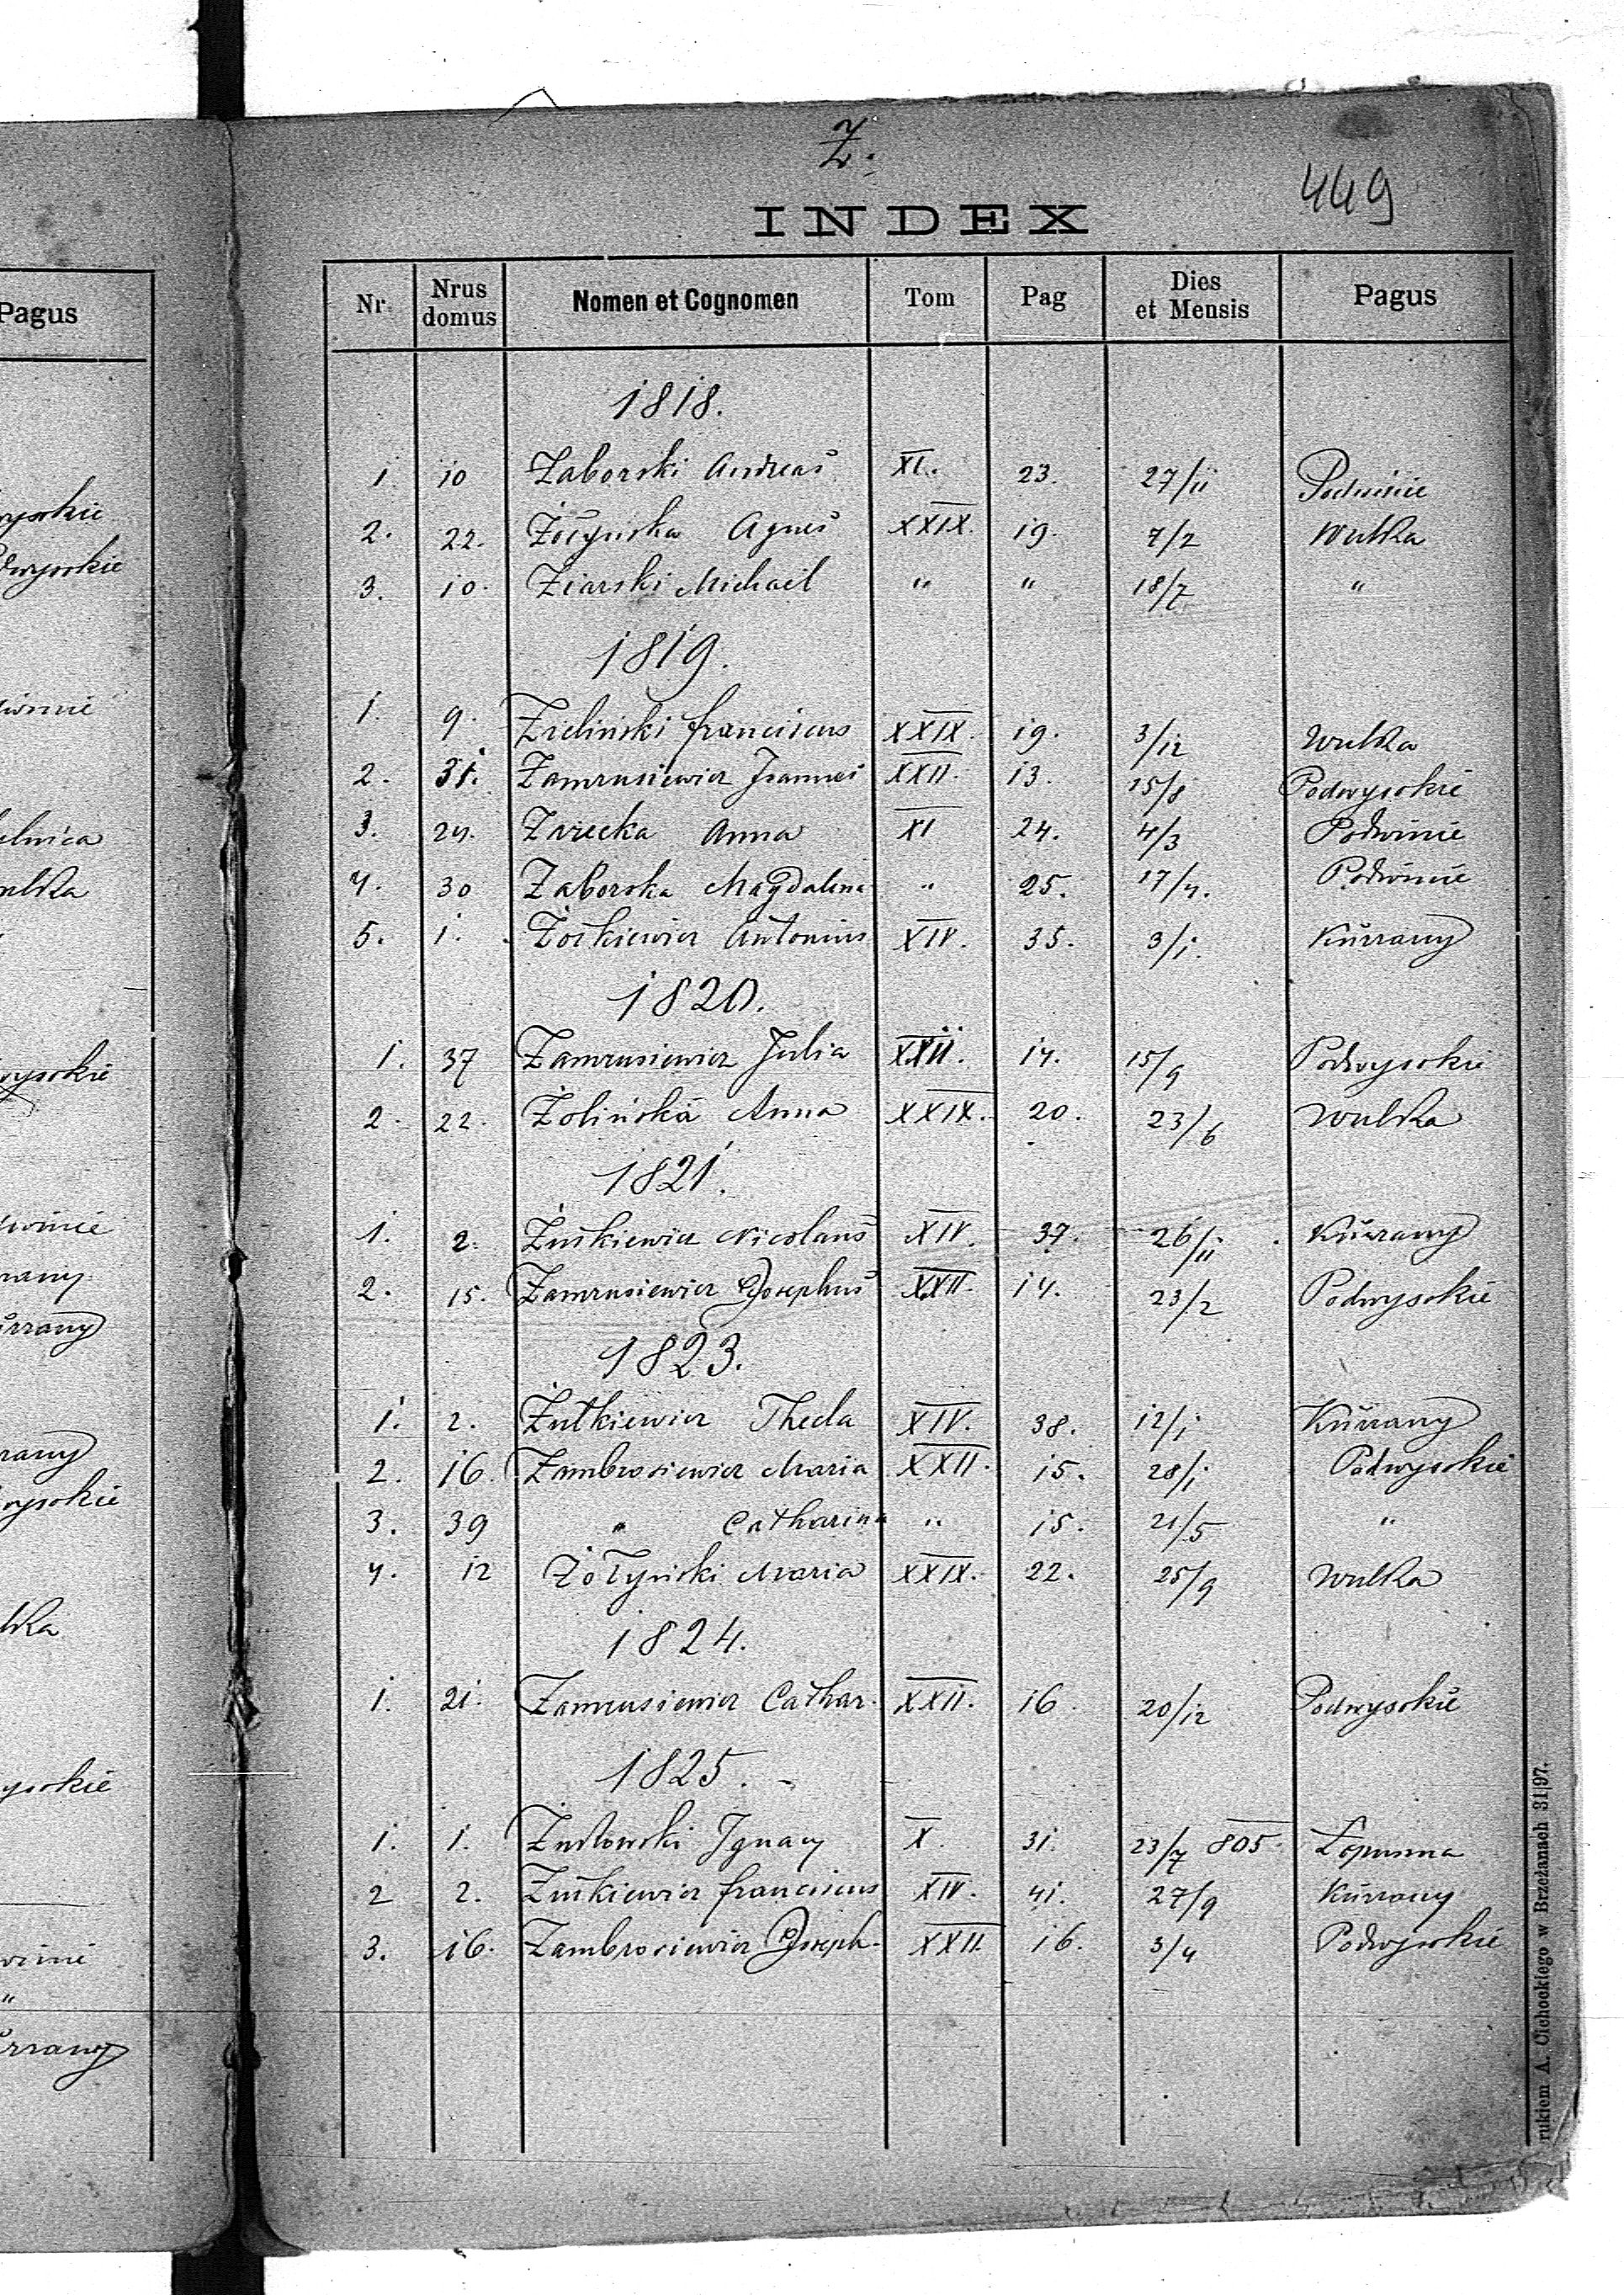 Pagus
Z.
449
INDEX
Nr. Nrus domus Nomen et Cognomen Tom Pag Dies et Mensis Pagus
1818.
1. 10 Zaborski Andreas XI. 23. 27/11 Podwinie
2. 22. Agnes XXIX 19. 7/2 Wulka
3. 10. Ziarski Michael " " 18/7 "
1819.
1. 9. Zieliński franciscus XXIX. 19. 3/12 Wulka
2. 31. Zamrusiewicz Joannes XXII. 13. 15/8 Podwysokie
3. 24. Anna XI 24. 4/3 Podwinie
4. 30 Zaborska Magdalena " 25. 17/4. Podwinie
5. 1. Żołkiewicz Antonius XIV. 35. 3/1. Kurzany
1820.
1. 37 Zamrusiewicz Julia XXII. 14. 15/9 Podwysokie
2. 22. Żolińska Anna XXIX. 20. 23/6 Wulka
1821.
1. 2. Nicolaus XIV. 37. 26/11 Kurzany
2. 15. Zamrusiewicz Josephus XXII. 14. 23/2 Podwysokie
1823.
1. 2. Żułkiewicz Thecla XIV. 38. 12/1 Kurzany
2. 16. Zambrosiewicz Maria XXII. 15. 28/1 Podwysokie
3. 39 " Catharina " 15. 21/5 "
4. 12 Żołyński Maria XXIX. 22. 25/9 Wulka
1824.
1. 21. Zamrusiewicz Cathar. XXII. 16. 20/12 Podwysokie
1825.
1. 1. Ignacy X. 31. 23/7 805. Łopuszna
2 2. franciscus XIV. 41. 27/9 Kurzany
3. 16. Zambrosiewicz Joseph. XXII. 16. 3/4 Podwysokie
rukiem A. Cichockiego w Brzeżanach 31|97.